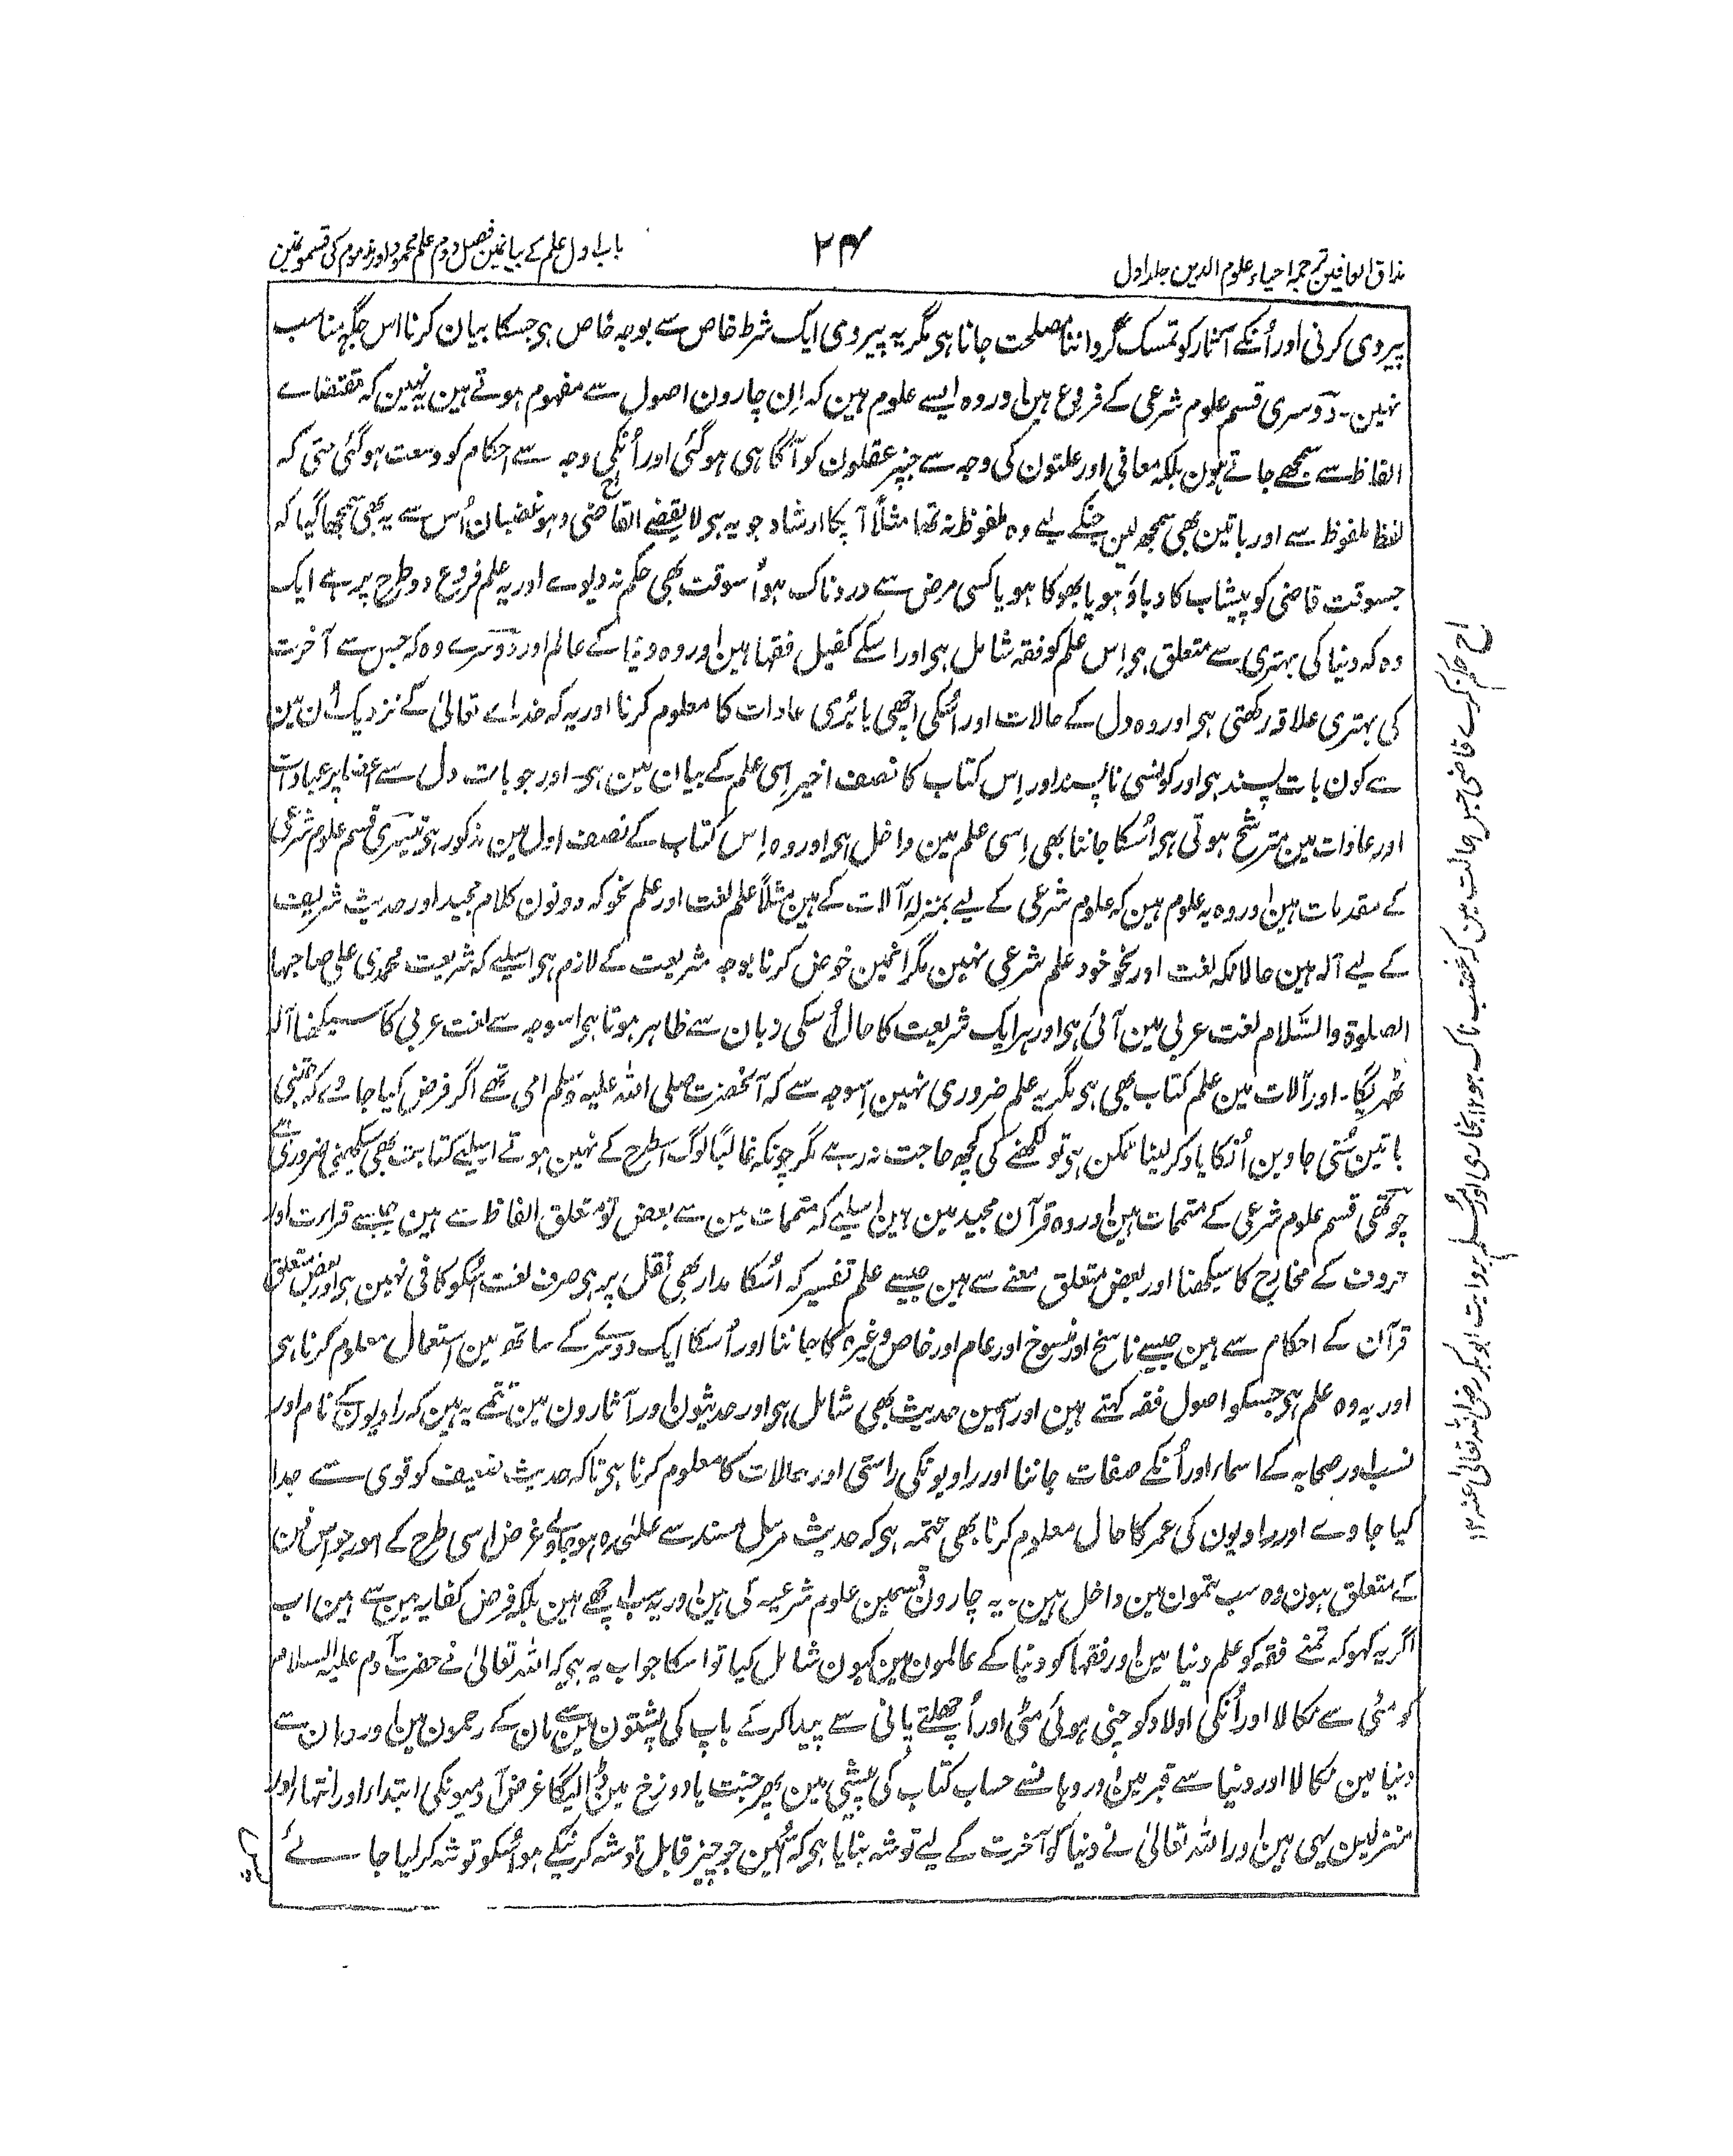 مذاق العارفین ترجمہ احیاء علوم الدین جلد اول
۲۴
باب اول علم کے بیانمین فصل دوم علم محمود اور مذموم کی قسمونمین
پیروی کرنی اور اُنکے آثار کو تمسک گرداننا مصلحت جانا ہی مگر یہ پیروی ایک شرط خاص سے بوجہ خاص ہو جسکا بیان کرنا اس جگہہ مناسب
نہین۔ دوسری قسم علوم شرعی کے فروع ہین اور وہ ایسے علوم ہین کہ اِن چارون اصول سے مفہوم ہوتے ہین یہ نہین کہ مقتضاے
الفاظ سے سمجھے جاتے ہون بلکہ معانی اور علتون کی وجہ سے جنپر عقلون کو آگاہی ہو گئی اور اُنکی وجہ سے احکام کو وسعت ہو گئی حتی کہ
لفظ ملفوظ سے اور باتین بھی سمجھ لین جنکے لیے وہ ملفوظ نہ تھا مثلاً آپکا ارشاد جو یہ ہی لا یقضے القاضی وہو غضبان اُس سے یہ بھی سمجھا گیا کہ
جسوقت قاضی کو پیشاب کا دباؤ ہو یا بھوکا ہو یا کسی مرض سے دردناک ہو اُسوقت بھی حکم نہ دیوے اور یہ علم فروع دو طرح پر ہے ایک
وہ کہ دنیا کی بہتری سے متعلق ہو اِس علم کو فقہ شامل ہی اور اسکے کفیل فقہا ہین اور وہ دنیا کے عالم اور دوسرے وہ کہ جس سے آخرت
کی بہتری علاقہ رکھتی ہو اور وہ دل کے حالات اور اُسکی اچھی یا بُری عادات کا معلوم کرنا اور یہ کہ خداے تعالیٰ کے نزدیک اُن مین
سے کون بات پسند ہی اور کونسی ناپسند اور اِس کتاب کا نصف اخیر اِسی علم کے بیان مین ہی۔ اور جو بات دل سے اعضا پر عبادات
اور عادات مین مترشح ہوتی ہی اُسکا جاننا بھی اِسی علم مین داخل ہی اور وہ اِس کتاب کے نصف اول مین مذکور ہی تیسری قسم علوم شرعی
کے مقدمات ہین اور وہ یہ علوم ہین کہ علوم شرعی کے لیے بمنزلہ آلات کے ہین مثلاً علم لغت اور علم نحو کہ دونون کلام مجید اور حدیث شریف
کے لیے آلہ ہین حالانکہ لغت اور نحو خود علم شرعی نہین مگر انمین خوض کرنا بوجہ شریعت کے لازم ہی اسلیے کہ شریعت محمدی علی صاحبہا
الصلوۃ والسّلام لغت عربی مین آئی ہی اور ہر ایک شریعت کا حال اُسکی زبان سے ظاہر ہوتا ہی اسوجہ سے لغت عربی کا سیکھنا آلہ
ٹھہریگا۔ اور آلات مین علم کتاب بھی ہی مگر یہ علم ضروری نہین اِسوجہ سے کہ آنحضرت صلی اللہ علیہ وسلم امی تھے اگر فرض کیا جاے کہ جتنی
باتین سُنی جاوین اُنکا یاد کر لینا ممکن ہی تو لکھنے کی کچھ حاجت نہ رہے مگر چونکہ غالبًا لوگ اسطرح کے نہین ہوتے اسلیے کتابت بھی سیکھنی ضروری ہے
چوتھی قسم علوم شرعی کے متممات ہین اور وہ قرآن مجید مین ہین اسلیے کہ متممات مین سے بعض تو متعلق الفاظ سے ہین جیسے قراءت اور
حروف کے مخارج کا سیکھنا اور بعض متعلق معنے سے ہین جیسے علم تفسیر کہ اُسکا مدار بھی نقل پر ہی صرف لغت اُسکو کافی نہین ہی اور بعض متعلق
قرآن کے احکام سے ہین جیسے ناسخ اور منسوخ اور عام اور خاص وغیرہ کا جاننا اور اُسکا ایک دوسرے کے ساتھ مین استعمال معلوم کرنا ہی
اور یہ وہ علم ہی جسکو اصول فقہ کہتے ہین اور اسمین حدیث بھی شامل ہی اور حدیثون اور آثارون مین تتمے یہ ہین کہ راویون کے نام اور
نسب اور صحابہ کے اسماء اور اُنکے صفات جاننا اور راویونکی راستی اور حالات کا معلوم کرنا ہی تاکہ حدیث ضعیف کو قوی سے جدا
کیا جاوے اور راویون کی عمر کا حال معلوم کرنا بھی تتمہ ہی کہ حدیث مرسل مسند سے علٰحدہ ہو جاوے غرض اسی طرح کے امور جو اِس فن
کے متعلق ہون وہ سب تتمون مین داخل ہین۔ یہ چارون قسمین علوم شرعیہ کی ہین اور یہ سب اچھے ہین بلکہ فرض کفایہ مین سے ہین اب
اگر یہ کہو کہ تمنے فقہ کو علم دنیا مین اور فقہا کو دنیا کے عالمون مین کیون شامل کیا تو اسکا جواب یہ ہی کہ اللہ تعالیٰ نے حضرت آدم علیہ السلام
کو مٹی سے نکالا اور اُنکی اولاد کو چنی ہوئی مٹی اور اُچھلتے پانی سے پیدا کر کے باپ کی پشتون مین سے مان کے رحمون مین اور وہان سے
دنیا مین نکالا اور دنیا سے قبر مین اور وہانسے حساب کتاب کی پیشی مین پھر جنت یا دوزخ مین ڈالیگا غرض آدمیونکی ابتداء اور انتہا اور
منزلین یہی ہین اور اللہ تعالیٰ نے دنیا کو آخرت کے لیے توشہ بنایا ہی کہ اُسمین جو چیز قابل توشہ کرنیکے ہو اُسکو توشہ کر لیا جائے
حکم نکرے قاضی جس حالت مین کہ غضب ناک ہو ۱۲ بخاری اور مسلم بروایت ابو بکرہ رضی اللہ تعالیٰ عنہ ۱۲